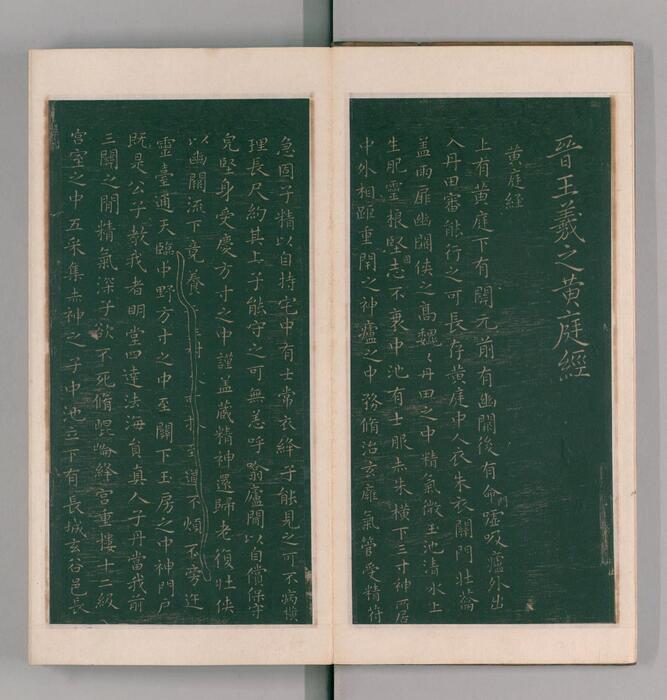 晉王羲之黃庭經
黃庭經
上有黃庭下有關元前有幽闕後有命噓吸廬外出
入丹田審能行之可長存黃庭中人衣朱衣關門壯蘥
盖兩扉幽闕俠之高巍巍丹田之中精氣微玉池清水上
生肥靈根堅志不衰中池有士服赤朱橫下三寸神所居
中外相距重閉之神廬之中務脩治玄廱氣管受精符
急固子精以自持宅中有士常衣絳子能見之可不病橫
理長尺約其上子能守之可無恙呼噏廬間以自償保守
皃堅身受慶方寸之中謹盖藏精神還歸老復壯俠
以幽闕流下竟養至道不煩不旁迕
靈臺通天臨中野方寸之中至關下玉房之中神門戶
既是公子教我者明堂四達法海員真人子丹當我前
三關之間精氣深子欲不死脩崐崘絳宮重樓十二級
宮室之中五采集赤神之子中池立下有長城玄谷邑長